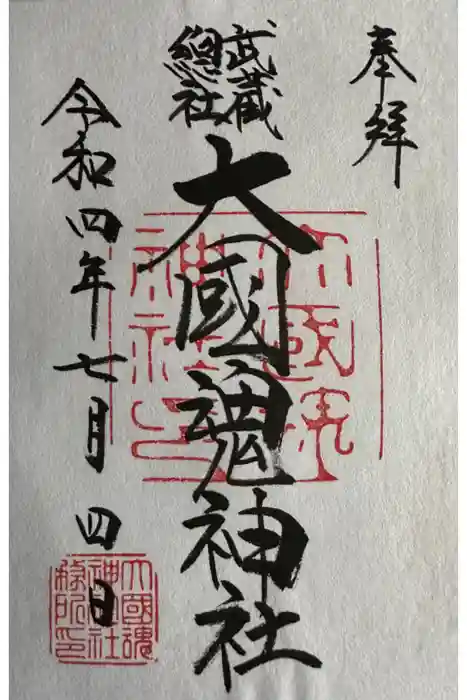 奉拝
武蔵
總社
大國魂神社
令和四年七月四日
大國魂
神社印
大國魂
神社社
務所印